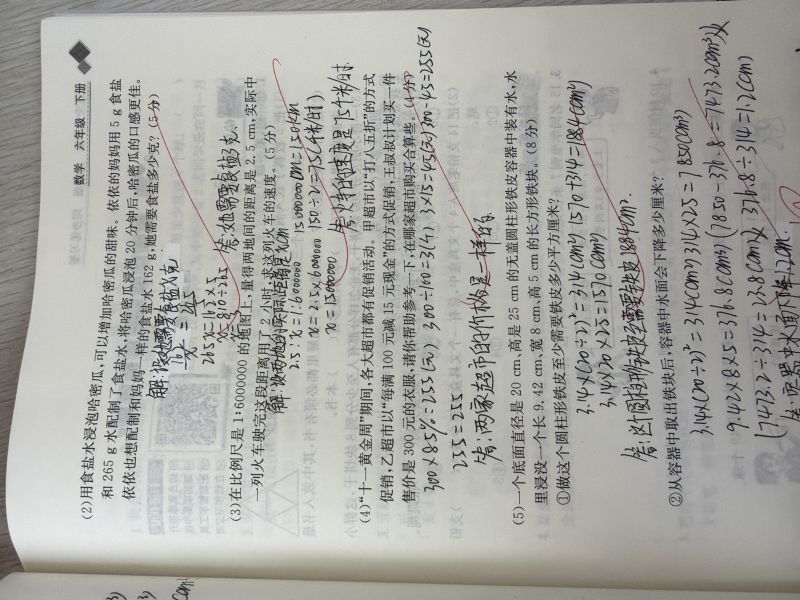 数学 六年级 下册
(2)用食盐水浸泡哈密瓜,可以增加哈密瓜的甜味。依依的妈妈用 5 g 食盐
和 265 g 水配制了食盐水,将哈密瓜浸泡 20 分钟后,哈密瓜的口感更佳。
依依也想配制和妈妈一样的食盐水 162 g,她需要食盐多少克?(5 分)
解:设她需要食盐x克
答:她需要食盐克
(3)在比例尺是 1:6000000 的地图上,量得两地间的距离是 2.5 cm,实际中
一列火车驶完这段距离用了 2 小时,求这列火车的速度。(5 分)
解:设两地的实际距离是xcm
2.5:x=1:6000000
x=2.5×6000000
x=15000000
15000000cm=150km
150÷2=75(千米/时)
答:火车的速度是75千米/时
(4)“十一黄金周”期间,各大超市都有促销活动。甲超市以“打八五折”的方式
促销,乙超市以“每满 100 元减 15 元现金”的方式促销,王叔叔计划买一件
售价是 300 元的衣服,请你帮助参考一下,在哪家超市购买合算些。(4 分)
300×85%=255(元) 300÷100=3(个) 3×15=45(元) 300-45=255(元)
255=255
答:两家超市的价格是一样的
(5)一个底面直径是 20 cm、高是 25 cm 的无盖圆柱形铁皮容器中装有水,水
里浸没一个长 9.42 cm、宽 8 cm、高 5 cm 的长方形铁块。(8 分)
①做这个圆柱形铁皮至少需要铁皮多少平方厘米?
3.14×(20÷2)²=314(cm²) 1570+314=1884(cm²)
3.14×20×25=1570(cm²)
答:这个圆柱形铁皮至少需要铁皮1884cm².
②从容器中取出铁块后,容器中水面会下降多少厘米?
3.14×(20÷2)²=314(cm²) 314×25=7850(cm³)
9.42×8×5=376.8(cm³) (7850-376.8=7473.2(cm³)
(7473.2÷314=23.8(cm) 376.8÷314=1.2(cm)
答:容器中水面下降1.2cm.